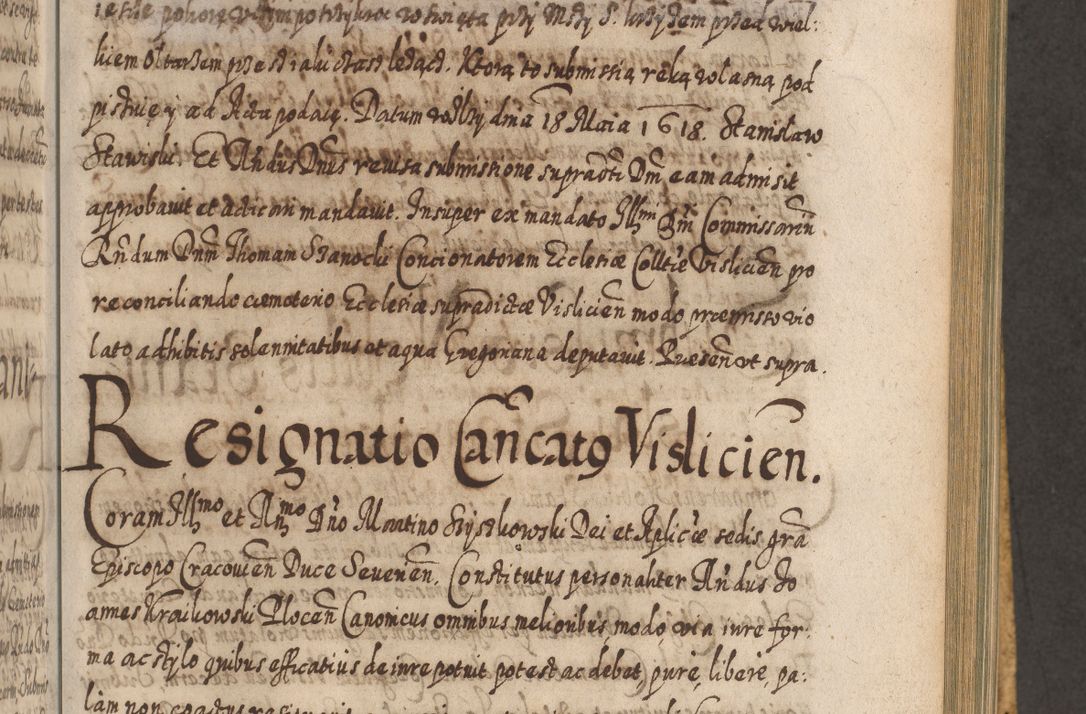 licem Ołtarzem przestrału został ledąct. Ktorą to submissią ręką własną pod
pisuię y ad Acta podaię. Datum w Ilży dnia 18 Maia 1618. Stanisław
Stawiski. Et Rńdus Dnus revisa submissione supradcti Dni eam admisit
approbavit et adicari mandavit. Insuper ex mandato Illmi Dni Commissarii
Rńdum Dnm Thomam Stanocki Concionatorem Ecclesiæ Colltæ Vislicien po
reconciliando cæmeterio Ecclesiæ supradictæ Vislicien modo præmisso vio
lato adhibitis solannitatibus et aqua Gregoriana deputavit. Præsen ut supra.
Resignatio Cancatus Vislicien.
Coram Illmo et Rmo Dno Martino Szyszkowski Dei et Aplicæ sedis gra
Episcopo Cracovien Duce Severien. Constitutus personaliter Rńdus Jo
annes Kraikowski Plocen Canonicus omnibus melioribus modo via iure for:
ma ac stylo quibus efficatius de iure potuit potest ac debet, pure, libere, pa:
lam non coactus